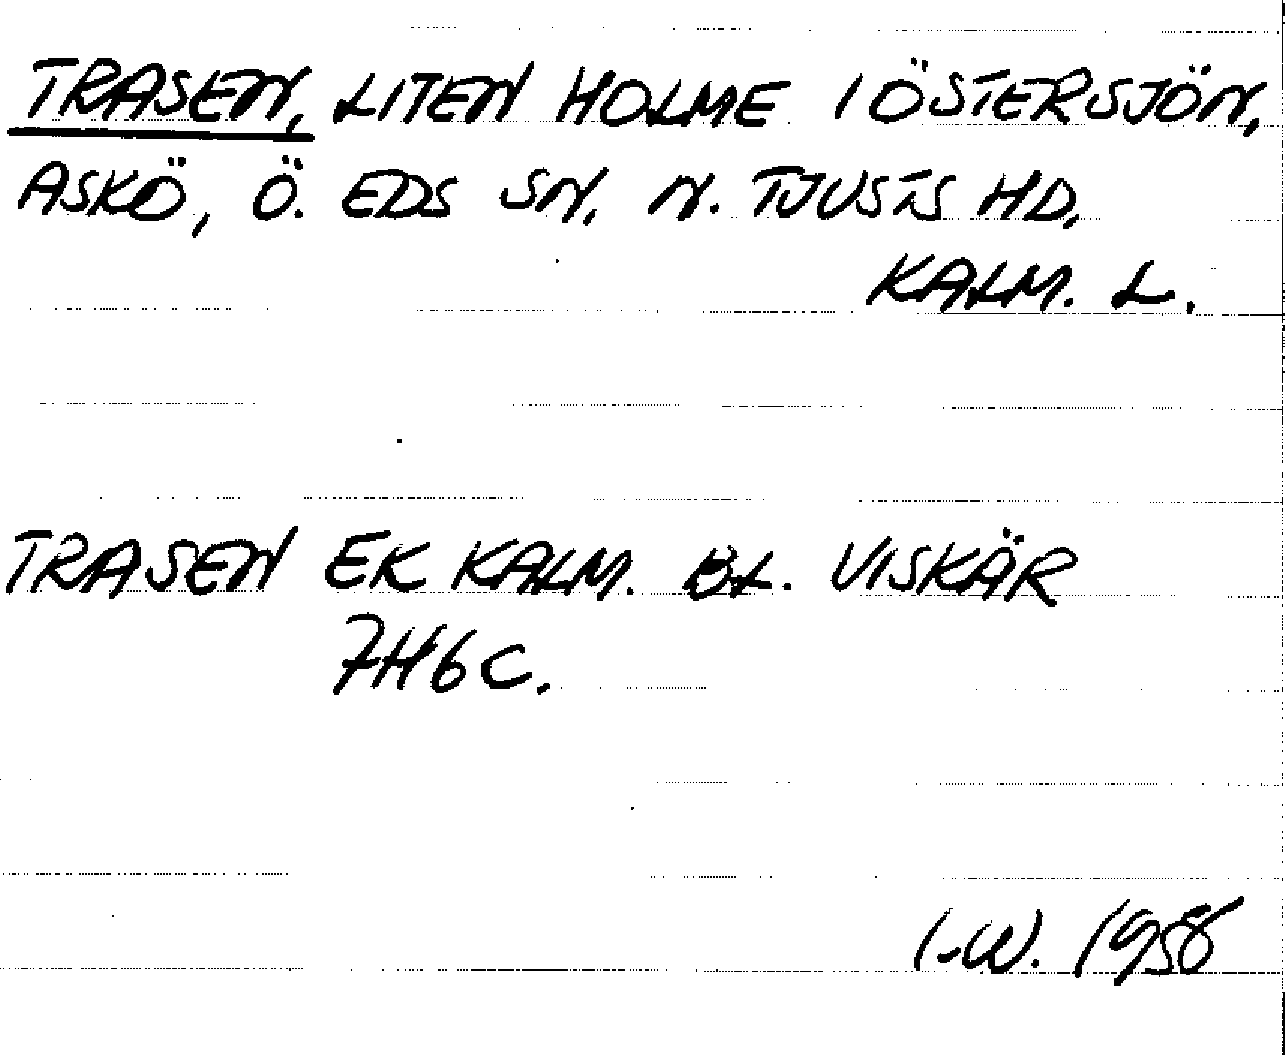 TRASEN, LITEN HOLME I ÖSTERSJÖN,
ASKÖ, Ö. EDS SN, N. TJUSTS HD,
KALM. L.
TRASEN EK KALM. BL. VISKÄR
7H6C.
I-W. 1958